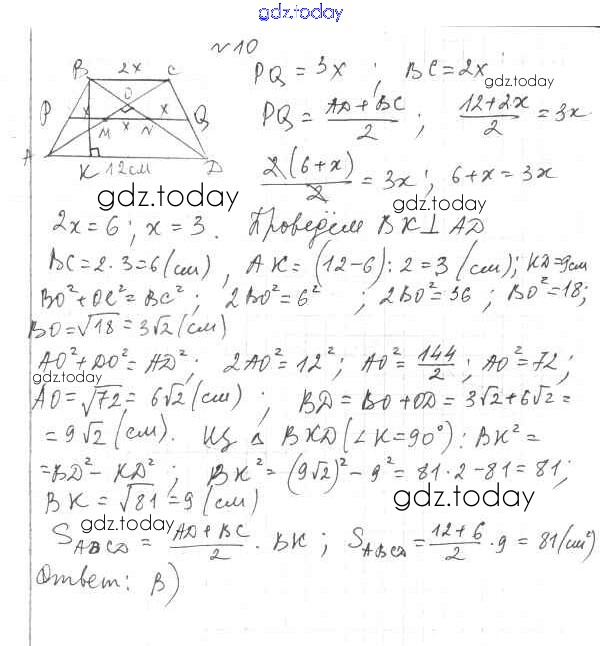 gdz.today
№10
B 2x C
O
P x x Q
M x N
A K 12см D
PQ = 3x ; BC = 2x
gdz.today
PQ = (AD + BC)/2 ; (12+2x)/2 = 3x
2(6+x)/2 = 3x ; 6+x = 3x
gdz.today
gdz.today
2x = 6 ; x = 3. Проведём BK ⊥ AD
BC = 2·3 = 6 (см), AK = (12-6):2 = 3 (см); KD = 9см
BO² + OC² = BC² ; 2BO² = 6² ; 2BO² = 36 ; BO² = 18;
BO = √18 = 3√2 (см)
AO² + DO² = AD² ; 2AO² = 12² ; AO² = 144/2 ; AO² = 72 ;
gdz.today
AO = √72 = 6√2 (см) ; BD = BO + OD = 3√2 + 6√2 =
= 9√2 (см). Из Δ BKD (∠K = 90°): BK² =
= BD² - KD² ; BK² = (9√2)² - 9² = 81·2 - 81 = 81;
BK = √81 = 9 (см)
gdz.today
gdz.today
S ABCD = (AD + BC)/2 · BK ; S ABCD = (12+6)/2 · 9 = 81 (см²)
Ответ: В)